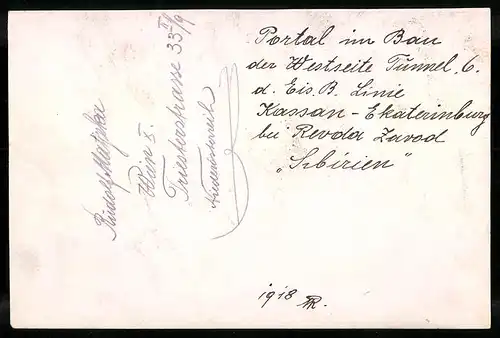 Portal im Bau
der Westseite Tunnel 6.
d. Eis. B. Linie
Kassan - Ekaterinburg
bei Revda Zavod
„Sibirien"
1918 R.
Rudolf
Wien X.
Triesterstrasse 33 II/9
Niederösterreich